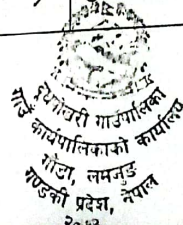 दूधपोखरी गाउँपालिका
गाउँ कार्यपालिकाको कार्यालय
गौंडा, लमजुङ
गण्डकी प्रदेश, नेपाल
२०७३